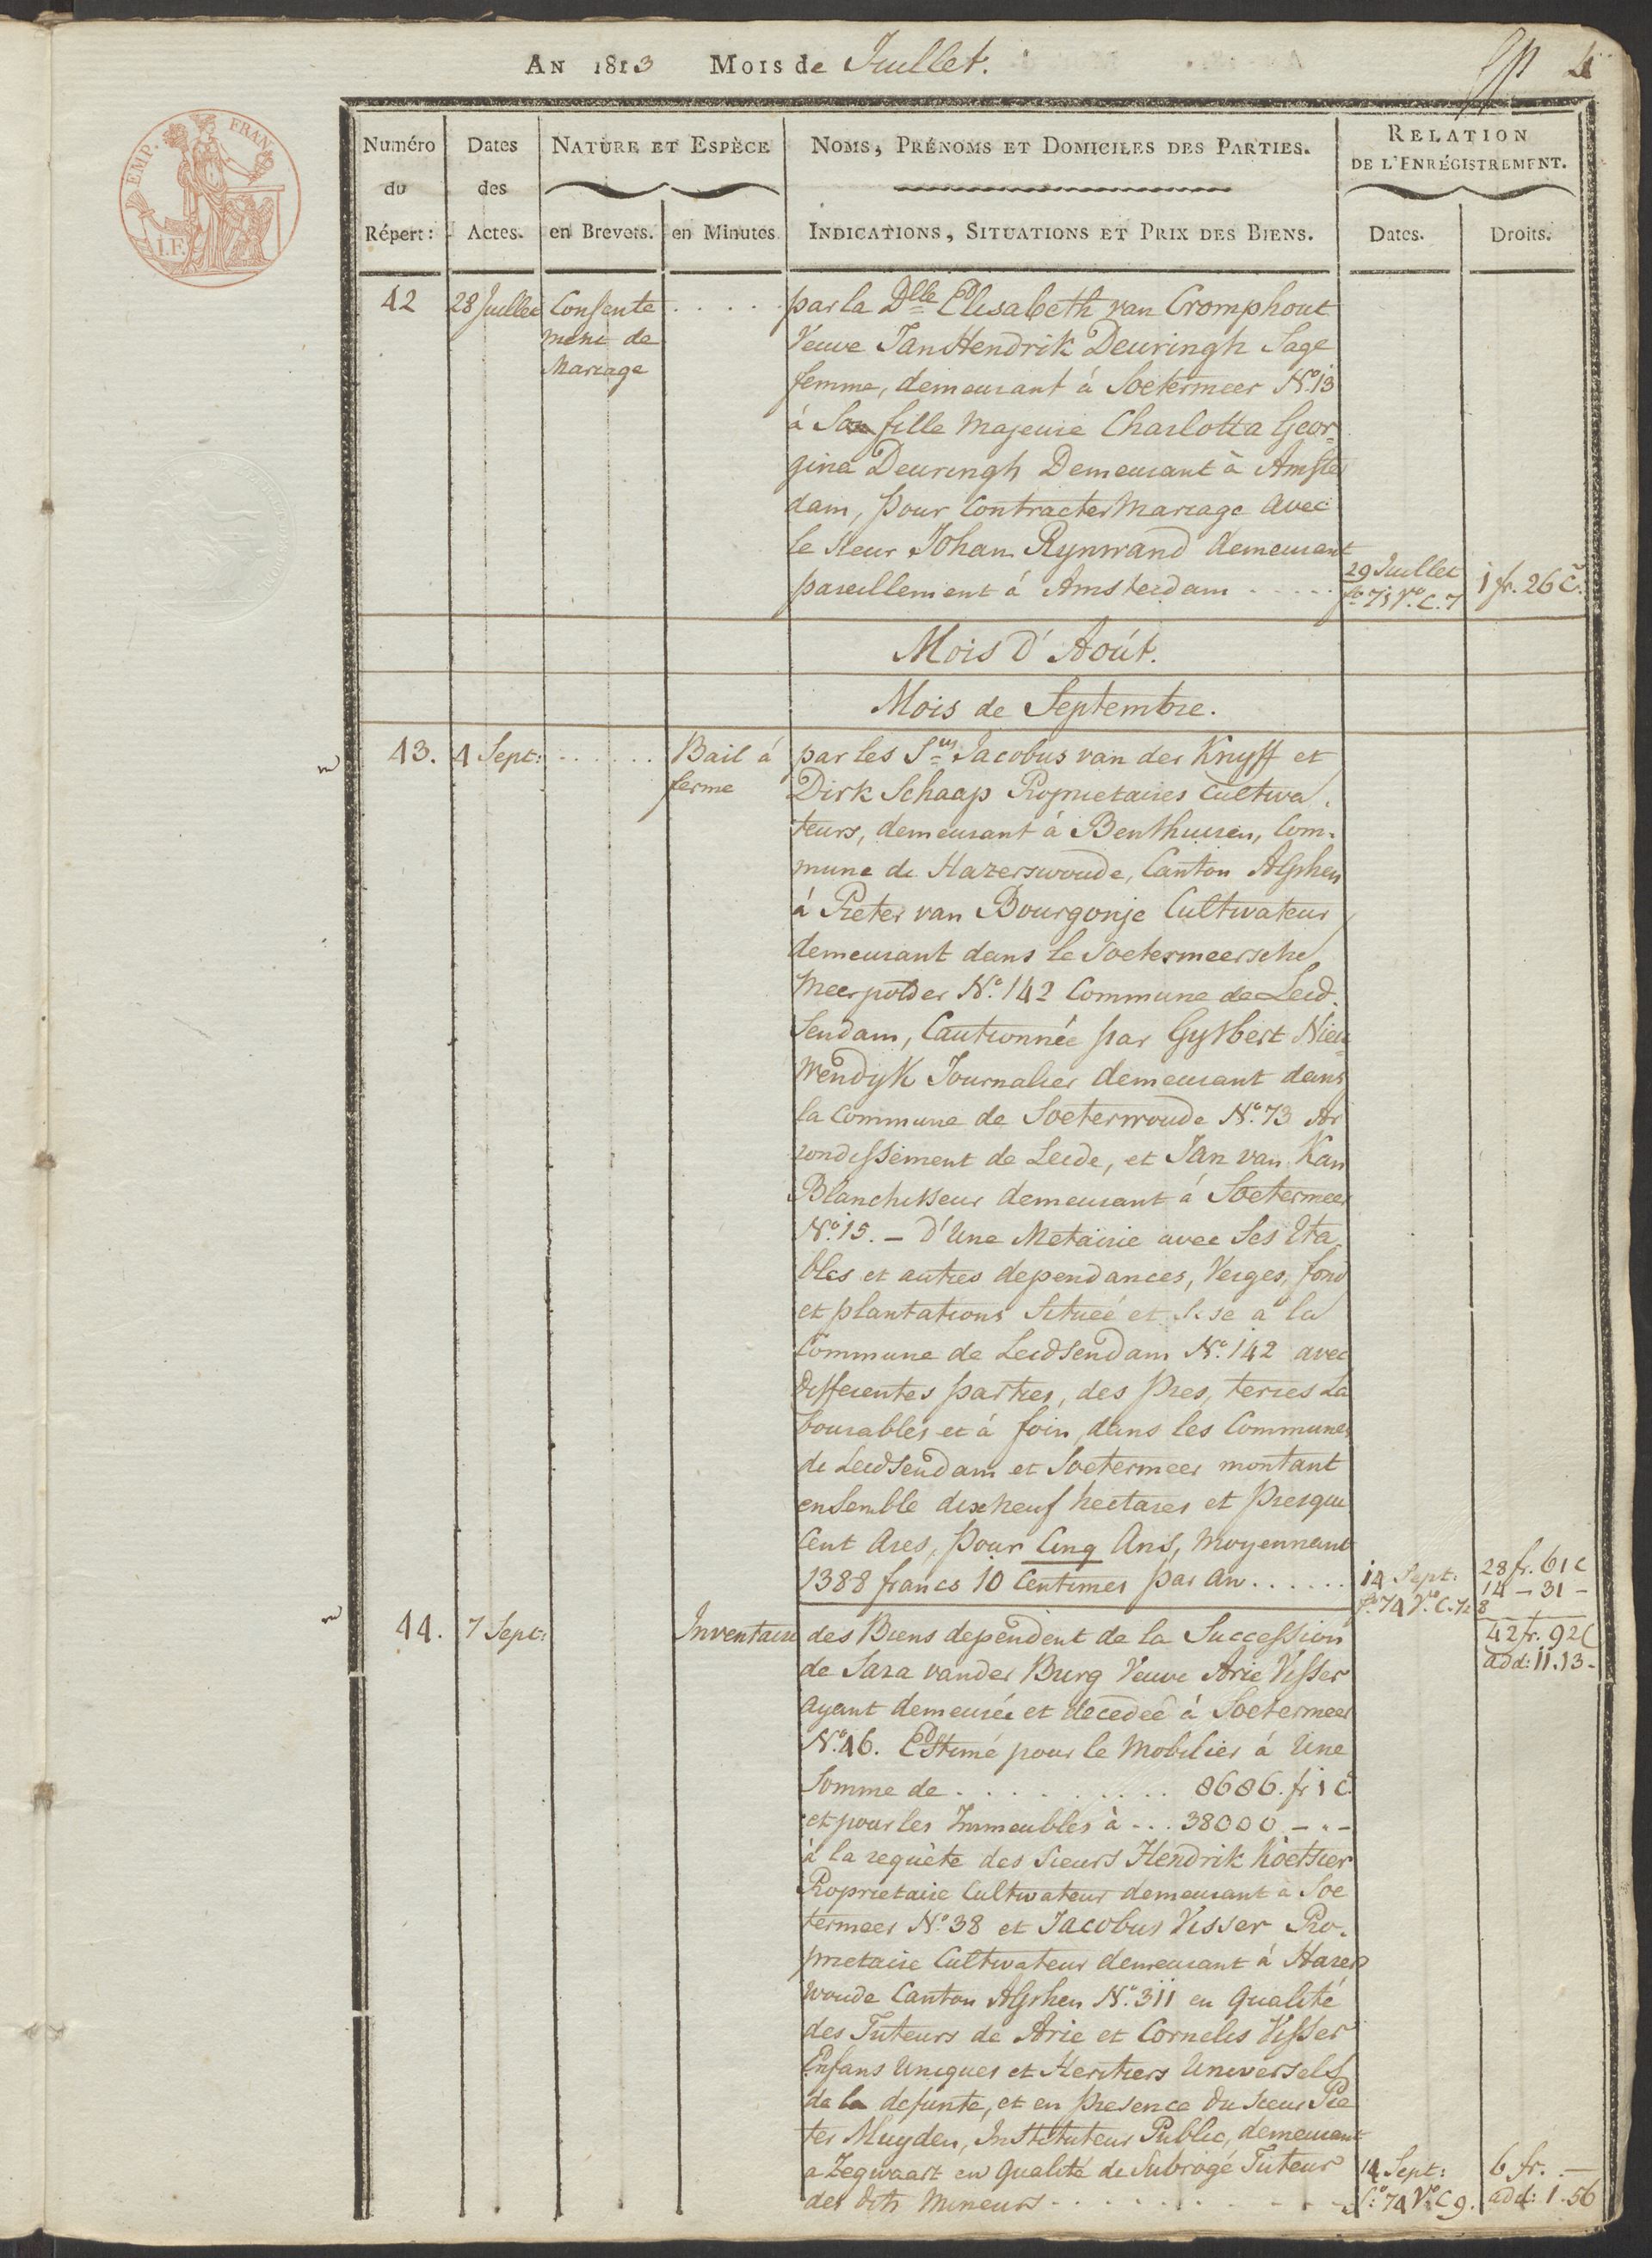 An 1813 Mois de Juillet. 4
EMP. FRAN
Numéro du Répert:
Dates des Actes.
Nature et Espèce
en Brevets. en Minutes
Noms, Prénoms et Domiciles des Parties.
Indications, Situations et Prix des Biens.
Relation de l'Enrégistrement.
Dates. Droits.
42 28 Juillet Consente . . . . . par la Dlle Elisabeth van Cromphout
ment de Veuve Jan Hendrik Deuringh Sage
Mariage femme, demeurant á Soetermeer No. 13
á Sa fille Majeure Charlotta Geor-
gina Deuringh Demeurant à Amster
dam, pour Contracter Mariage avec
le Sieur Johan Rynwand demeurant
pareillement á Amsterdam - - - - - 29 Juillet 1 fr. 26 C.
fo 75 Vo. C. 7
Mois d'Aoút.
Mois de Septembre.
43. 4 Sept: . . . . . . Bail á par les Srs Jacobus van der Knyff et
ferme Dirk Schaap Proprietaires Cultiva.
teurs, demeurant á Benthuisen, Com-
mune de Hazerswoude, Canton Alphen
á Pieter van Bourgonje Cultivateur
demeurant dans le Soetermeersche
Meerpolder No. 142 Commune de Leid
sendam, Cautionnée par Gysbert Nieu-
wendyk Journalier demeurant dans
la Commune de Soeterwoude No. 73 Ar
rondissement de Leide, et Jan van Kan
Blanchisseur demeurant á Soetermeer
No. 15. – d'Une Metairie avec Ses Eta
bles et autres dependances, Verges, fond
et plantations Situeé et Sise a la
Commune de Leidsendam No. 142 avec
differentes parties, des Pres, terres La
bourables et á foin, dans les Communes
de Leidsendam et Soetermeer montant
ensemble dixneuf hectares et presque
Cent Ares, pour Cinq Ans, Moyennant
1388 francs 10 Centimes par An . . . . . . 14 Sept: 28 fr. 61 C
fo. 74 Vo. C. 7 14 – 31 –
42 fr. 92 C
add: 11.13 -
44. 7 Sept: Inventaire des Biens dependent de la Succession
de Sara vander Burg Veuve Arie Visser
ayant demeurée et decedeé á Soetermeer
No. 46. Estimé pour le Mobilier á Une
Somme de . . . . . . . . . 8686. fr 1 C.
et pour les Immeubles à - . . 38000 – " –
à la requète des Sieurs Hendrik Koetsier
Proprietaire Cultivateur demeurant à Soe
termeer No. 38 et Jacobus Visser Pro-
prietaire Cultivateur demeurant á Hazers
woude Canton Alphen No. 311 en Qualité
des Tuteurs de Arie et Cornelis Visser
Enfans Uniques et Heritiers Universels
de la defunte, et en presence du Sieur Pie
ter Muyden, Instituteur Public, demeurant
a Zegwaart en Qualité de Subrogé Tuteur 14 Sept: 6 fr. –
des dits Mineurs - - - - - - - - - fo. 74 Vo. C 9. add: 1.56